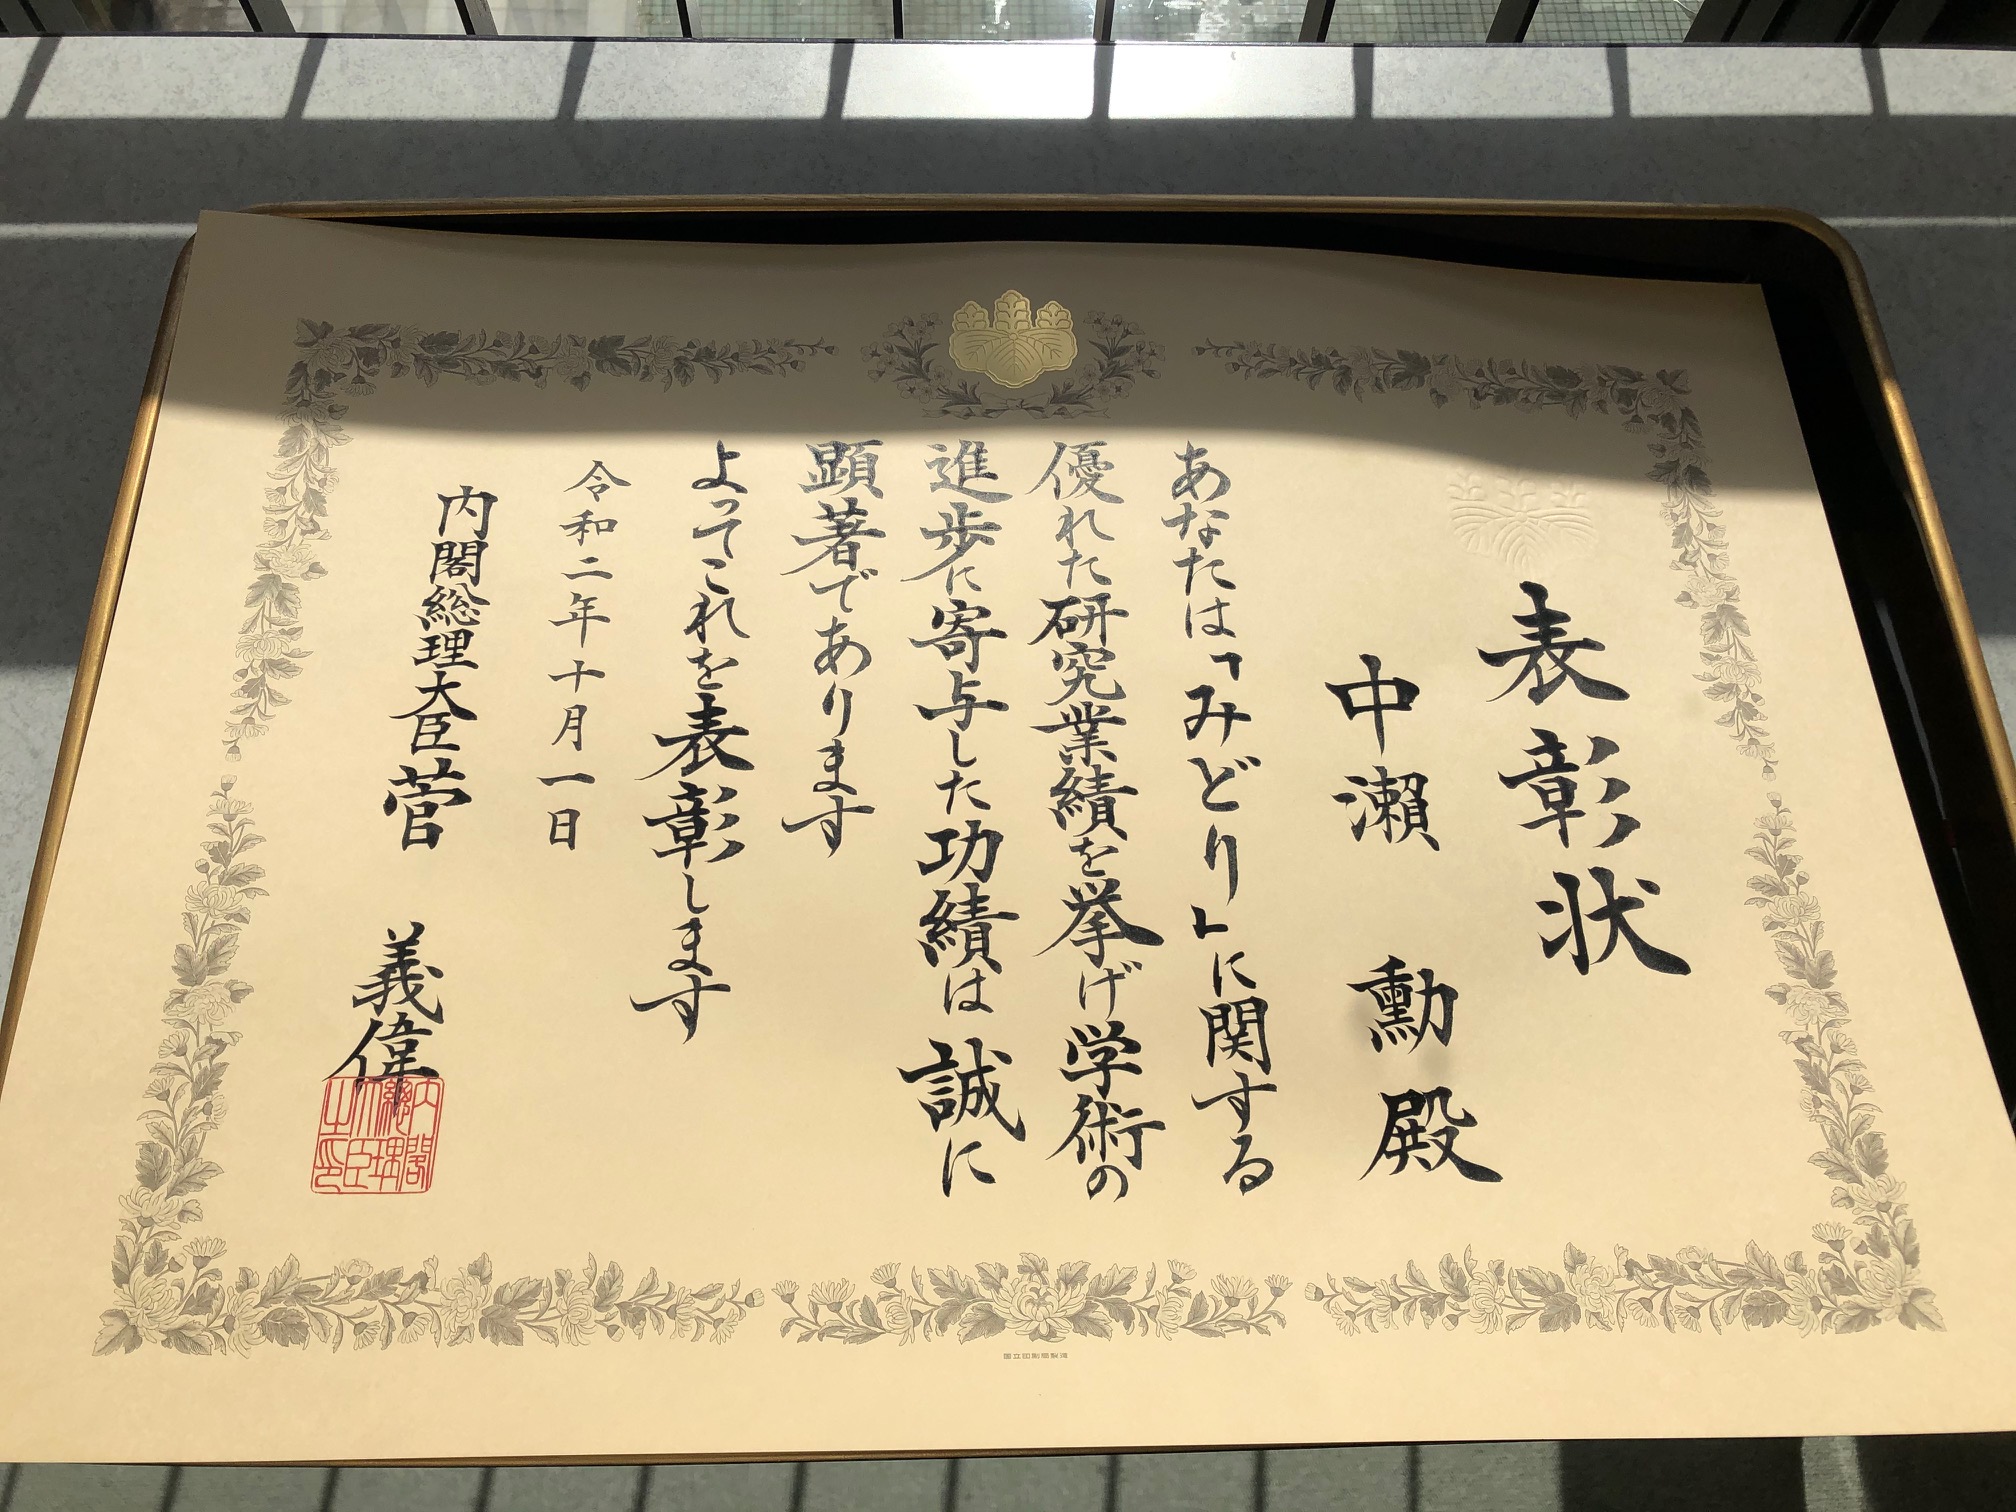 表彰状
中瀬 勲 殿
あなたは「みどり」に関する
優れた研究業績を挙げ学術の
進歩に寄与した功績は誠に
顕著であります
よってこれを表彰します
令和二年十月一日
内閣総理大臣 菅 義偉
内閣
總理
大臣
之印
国立印刷局製造